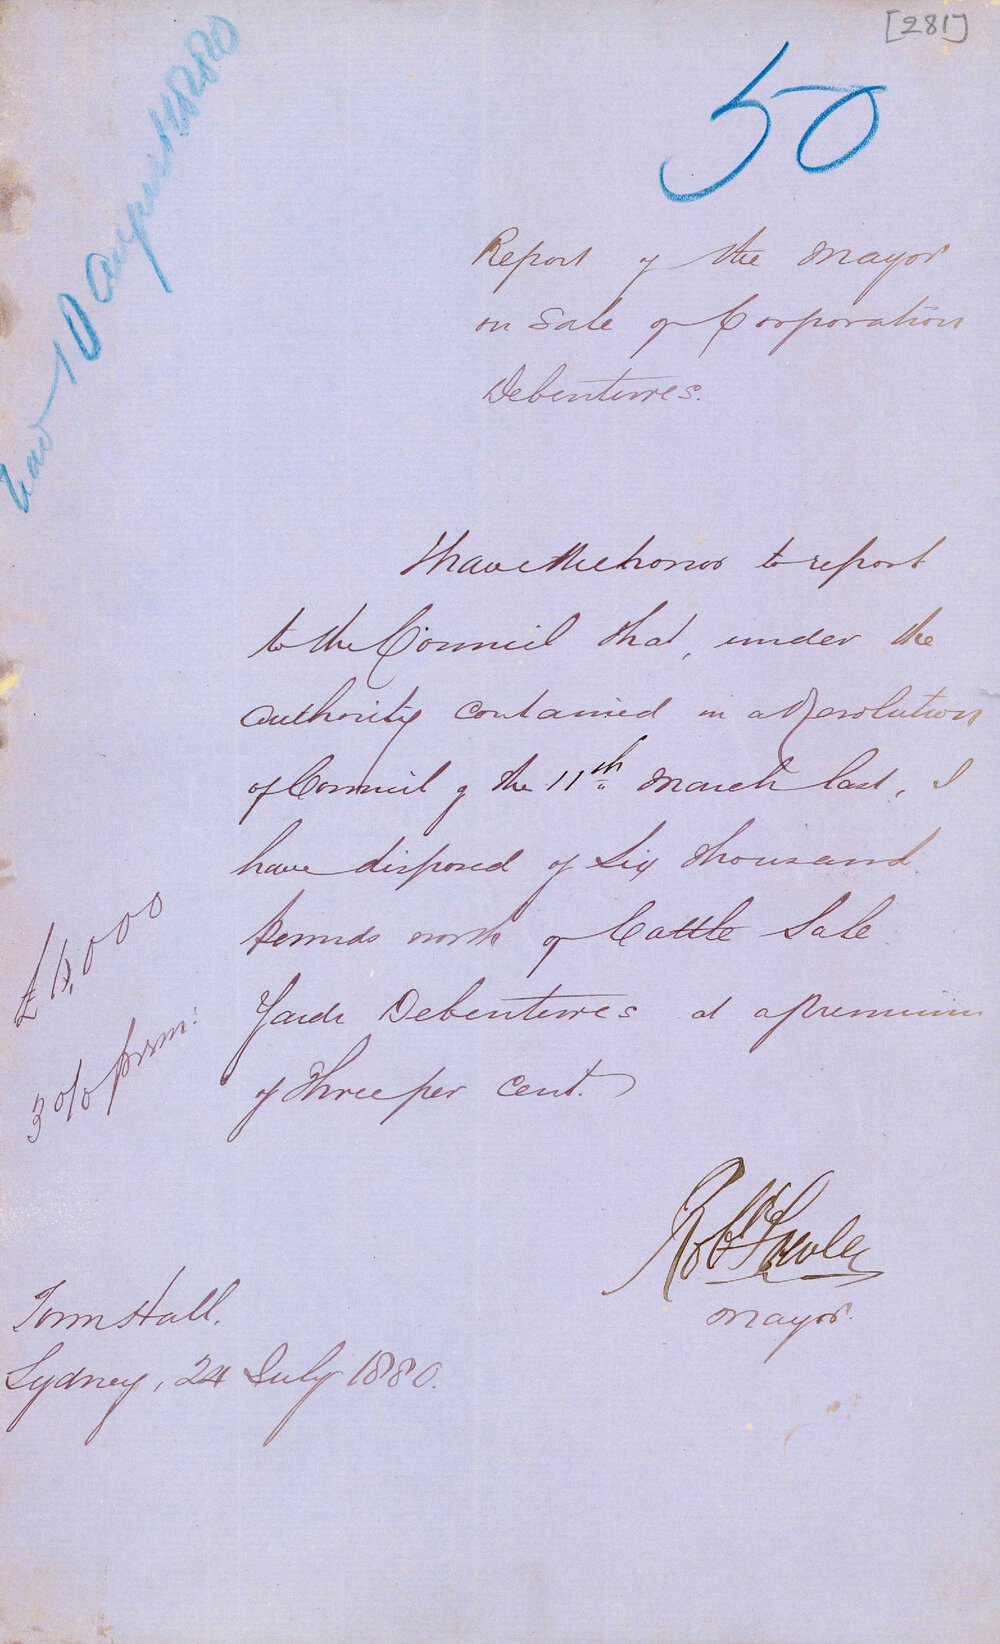 [281]
50
10 August 1880
Report of the Mayor
on Sale of Corporation
Debentures.
I have the honor to report
to the Council that, under the
authority contained in a Resolution
of Council of the 11th March last, I
have disposed of Six thousand
Pounds worth of Cattle Sale
Yards Debentures at a premium
of Three per cent.
£6,000
3 o/o prem:
Robt Fowler
Mayor.
Town Hall.
Sydney, 24 July 1880.